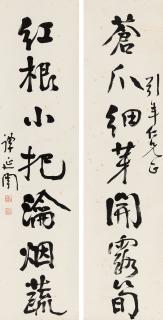 蒼爪細茅開露筍
引年仁兄正
紅根小把瀹烟蔬
譚延闓